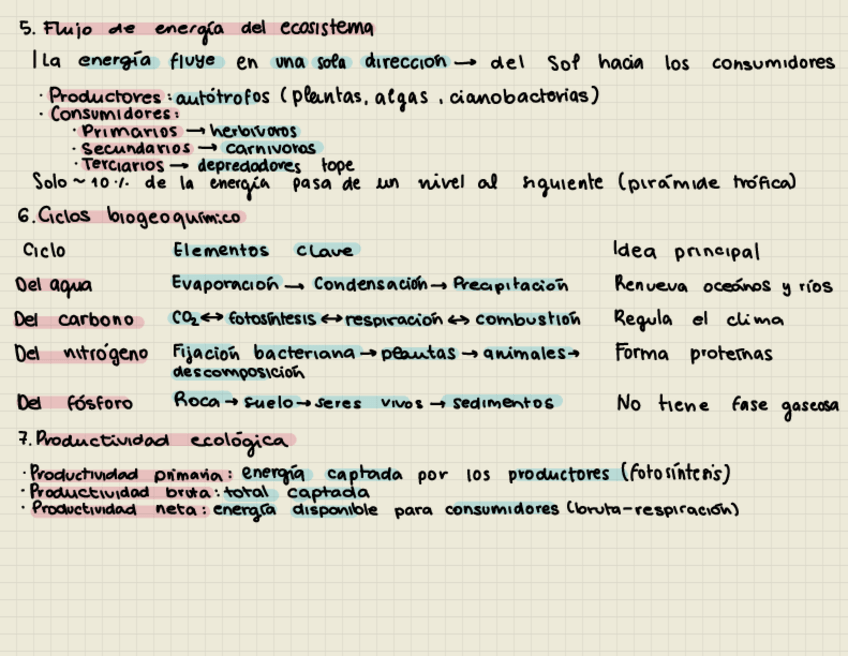 5. Flujo de energía del ecosistema
La energía fluye en una sola dirección → del Sol hacia los consumidores
· Productores: autótrofos (plantas, algas, cianobacterias)
· Consumidores:
· Primarios → herbívoros
· Secundarios → carnívoros
· Terciarios → depredadores tope
Solo ~10% de la energía pasa de un nivel al siguiente (pirámide trófica)
6. Ciclos biogeoquímico
Ciclo Elementos clave Idea principal
Del agua Evaporación → Condensación → Precipitación Renueva oceános y ríos
Del carbono CO₂ ↔ fotosíntesis ↔ respiración ↔ combustión Regula el clima
Del nitrógeno Fijación bacteriana → plantas → animales → Forma proteínas
descomposición
Del fósforo Roca → suelo → seres vivos → sedimentos No tiene fase gaseosa
7. Productividad ecológica
· Productividad primaria: energía captada por los productores (fotosíntesis)
· Productividad bruta: total captada
· Productividad neta: energía disponible para consumidores (bruta-respiración)